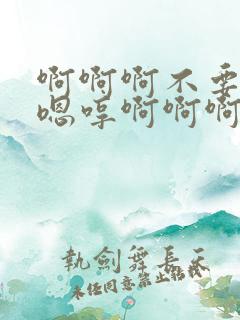 啊啊啊不要
嗯哼啊啊啊
執劍舞長天
未经同意禁止转载